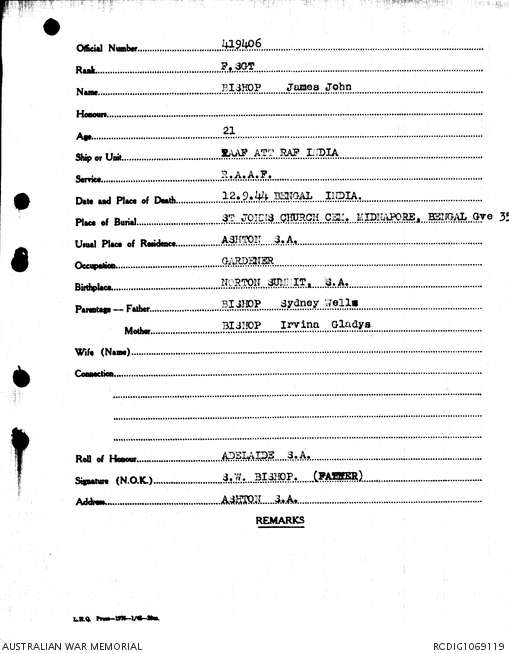 Official Number 419406
Rank F.SGT
Name BISHOP James John
Honours
Age 21
Ship or Unit RAAF ATT RAF INDIA
Service R.A.A.F.
Date and Place of Death 12.9.44 BENGAL INDIA.
Place of Burial ST JOHNS CHURCH CEM. MIDNAPORE, BENGAL Gve 35
Usual Place of Residence ASHTON S.A.
Occupation GARDENER
Birthplace NORTON SUMMIT, S.A.
Parentage — Father BISHOP Sydney Wells
Mother BISHOP Irvina Gladys
Wife (Name)
Connection
Roll of Honour ADELAIDE S.A.
Signature (N.O.K.) S.W. BISHOP. (FATHER)
Address ASHTON S.A.
REMARKS
L.H.Q. Press
AUSTRALIAN WAR MEMORIAL RCDIG1069119